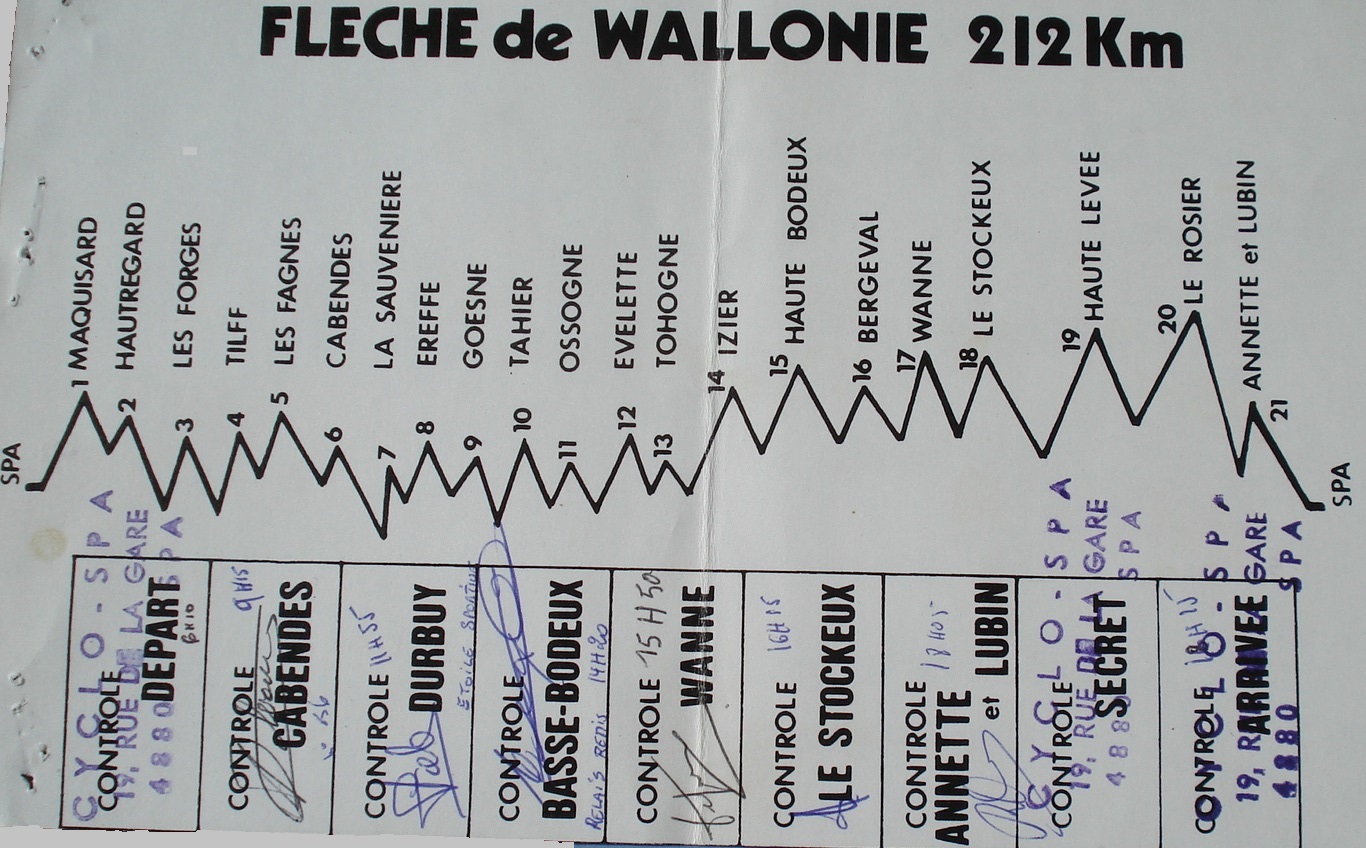 FLECHE de WALLONIE 212 Km
SPA
1 MAQUISARD
2 HAUTREGARD
3 LES FORGES
4 TILFF
5 LES FAGNES
6 CABENDES
7 LA SAUVENIERE
8 EREFFE
9 GOESNE
10 TAHIER
11 OSSOGNE
12 EVELETTE
13 TOHOGNE
14 IZIER
15 HAUTE BODEUX
16 BERGEVAL
17 WANNE
18 LE STOCKEUX
19 HAUTE LEVEE
20 LE ROSIER
21 ANNETTE et LUBIN
SPA
CONTROLE
DEPART
6H10
CYCLO-SPA
19, RUE DE LA GARE
4880 SPA
CONTROLE 9H15
CABENDES
CONTROLE 11H55
DURBUY
ETOILE SPORTIVE
CONTROLE
BASSE-BODEUX
RELAIS BENIS 14H20
CONTROLE 15H50
WANNE
CONTROLE 16H15
LE STOCKEUX
CONTROLE 17H05
ANNETTE
et LUBIN
CONTROLE
SECRET
CYCLO-SPA
19, RUE DE LA GARE
4880 SPA
CONTROLE 18H15
ARRIVEE
CYCLO-SPA
19, RUE DE LA GARE
4880 SPA